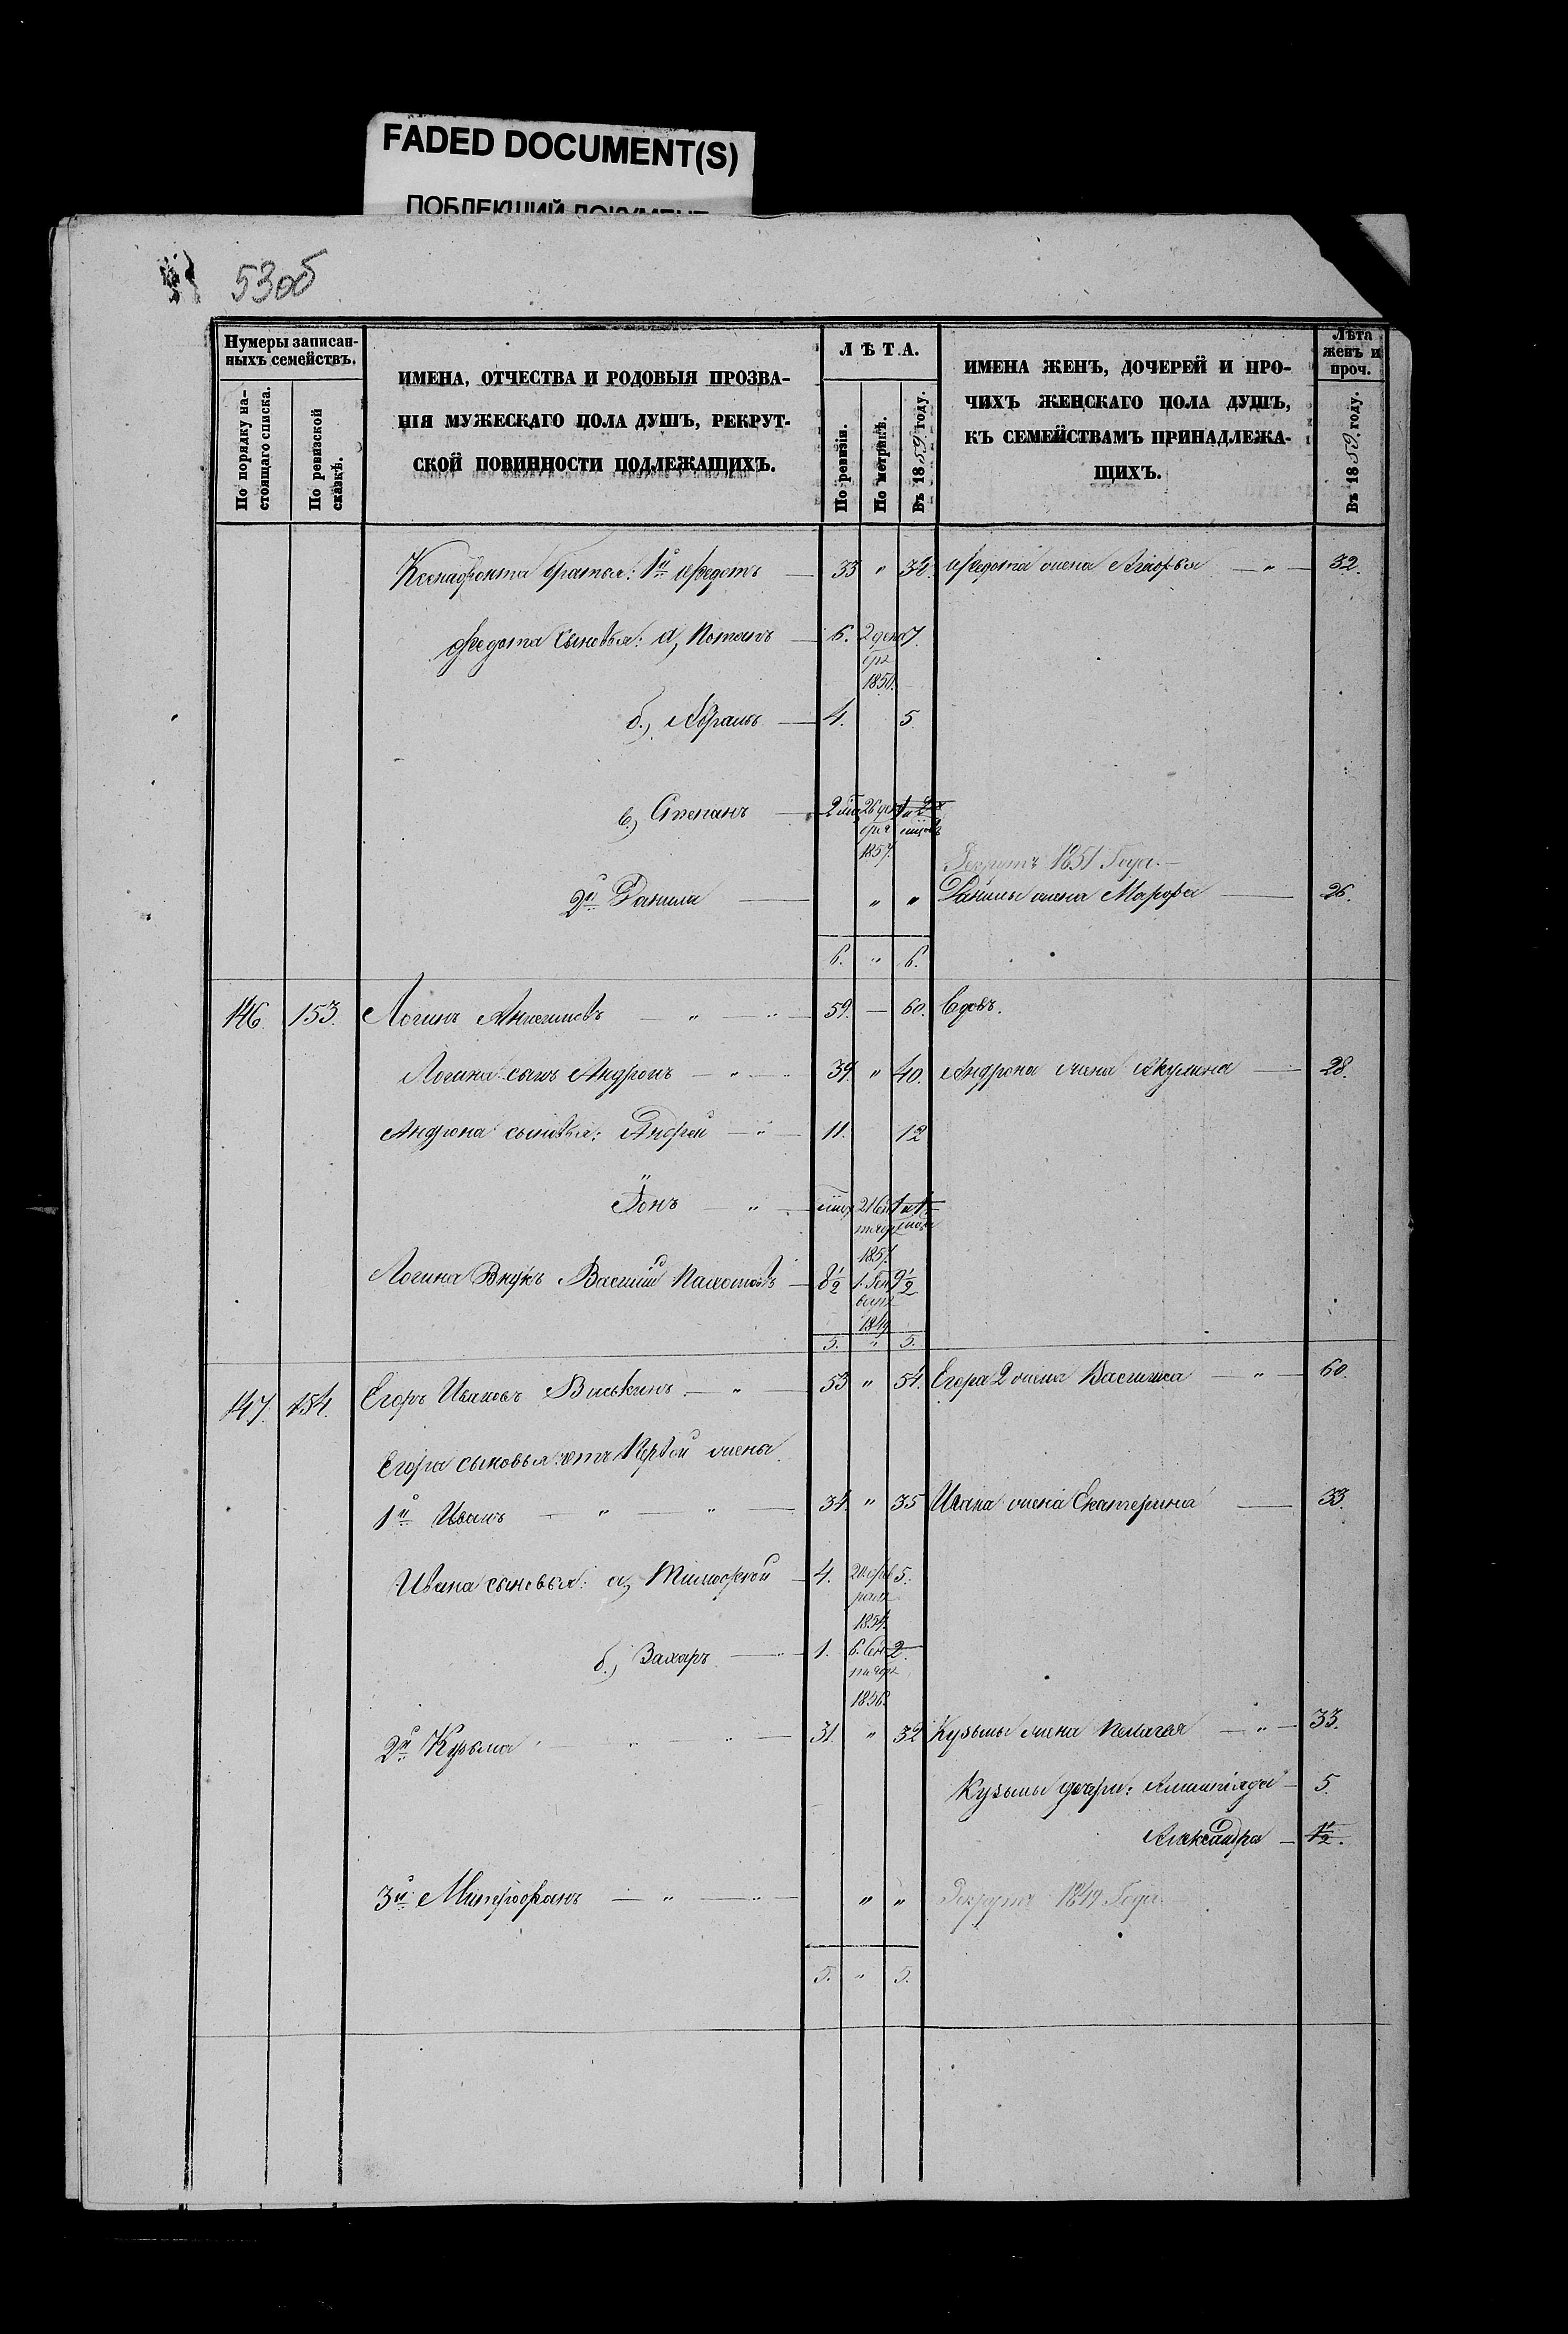 FADED DOCUMENT(S)
ПОБЛЕКШИЙ ДОКУМЕНТ
53об
Нумеры записан-
ныхъ семействъ.
По порядку на-
стоящаго списка.
По ревизской
сказкѣ.
ИМЕНА, ОТЧЕСТВА И РОДОВЫЯ ПРОЗВА-
НІЯ МУЖЕСКАГО ПОЛА ДУШЪ, РЕКРУТ-
СКОЙ ПОВИННОСТИ ПОДЛЕЖАЩИХЪ.
ЛѢТА.
По ревизіи.
По метрикѣ.
Въ 1859 году.
ИМЕНА ЖЕНЪ, ДОЧЕРЕЙ И ПРО-
ЧИХЪ ЖЕНСКАГО ПОЛА ДУШЪ,
КЪ СЕМЕЙСТВАМЪ ПРИНАДЛЕЖА-
ЩИХЪ.
Лѣта
женъ и
проч.
Въ 1859 году.
Ксенафонта братья: 1й Ѳедотъ — 33 " 34. Ѳедота жена — " — 32.
Ѳедота сыновья: а, Потапъ — 6. 2 дека 7.
бря
1850.
б., Абрамъ — 4. 5.
в., Степанъ — 26 дека
бря
1857.
Рекрутъ 1851 Года.
2й Данила — " " Данилы жена Марфа — 26.
6. " 6.
146. 153. Логинъ — " — 59. — 60. Вдовъ.
Логина сынъ Андронъ — " — 39. " 40. Андрона жена Акулина — 28.
Андрона сыновья: Андрей — " — 11. 12
Іонъ — " — 21 Сен
тябр
1857.
Логина Внукъ Василій Пахомовъ — 8½ 1. Ген 9½
варя
1849
5. " 5.
147. 154. Егоръ Ивановъ Васькинъ — " — 53 " 54. Егора 2 жена Василиса — " — 60.
Егора сыновья отъ Первой жены
1й Иванъ — " — " — 34. " 35 Ивана жена Екатерина — 33.
Ивана сыновья: а, Тимофей — 4. фев 5.
раля
1854.
б., Захаръ — 1. 6. Сен 2.
тября
1856.
2й Кузьма — 31. " 32 Кузьмы жена Пелагея — " — 33.
Кузьмы дочери: — 5.
Александра — 1½.
3й Митрофанъ — " — " " Рекрутъ 1849 Года.
5. " 5.